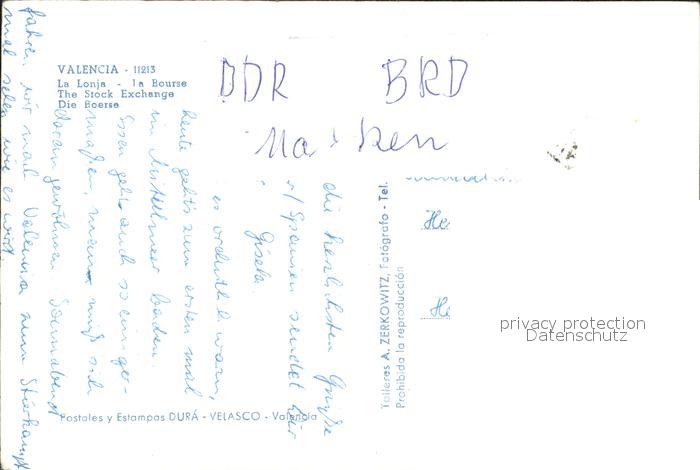 VALENCIA - 11213
La Lonja - la Bourse
The Stock Exchange
Die Boerse
DDR BRD
Marken
die herzlichsten Grüße
v/ Spanien sendet Dir
Gisela.
es ordentl. warm,
heute geht's zum ersten mal
im Mittelmeer baden.
Essen geht's auch so einiger-
maßen, man muß sich
daran gewöhnen. Sonnabend
fahren wir mal Valencia zum Stierkampf
mal sehen wie es wird.
Talleres A. ZERKOWITZ, Fotógrafo - Tel.
Prohibida la reproducción
He
He
privacy protection
Datenschutz
Postales y Estampas DURÁ - VELASCO - Valencia